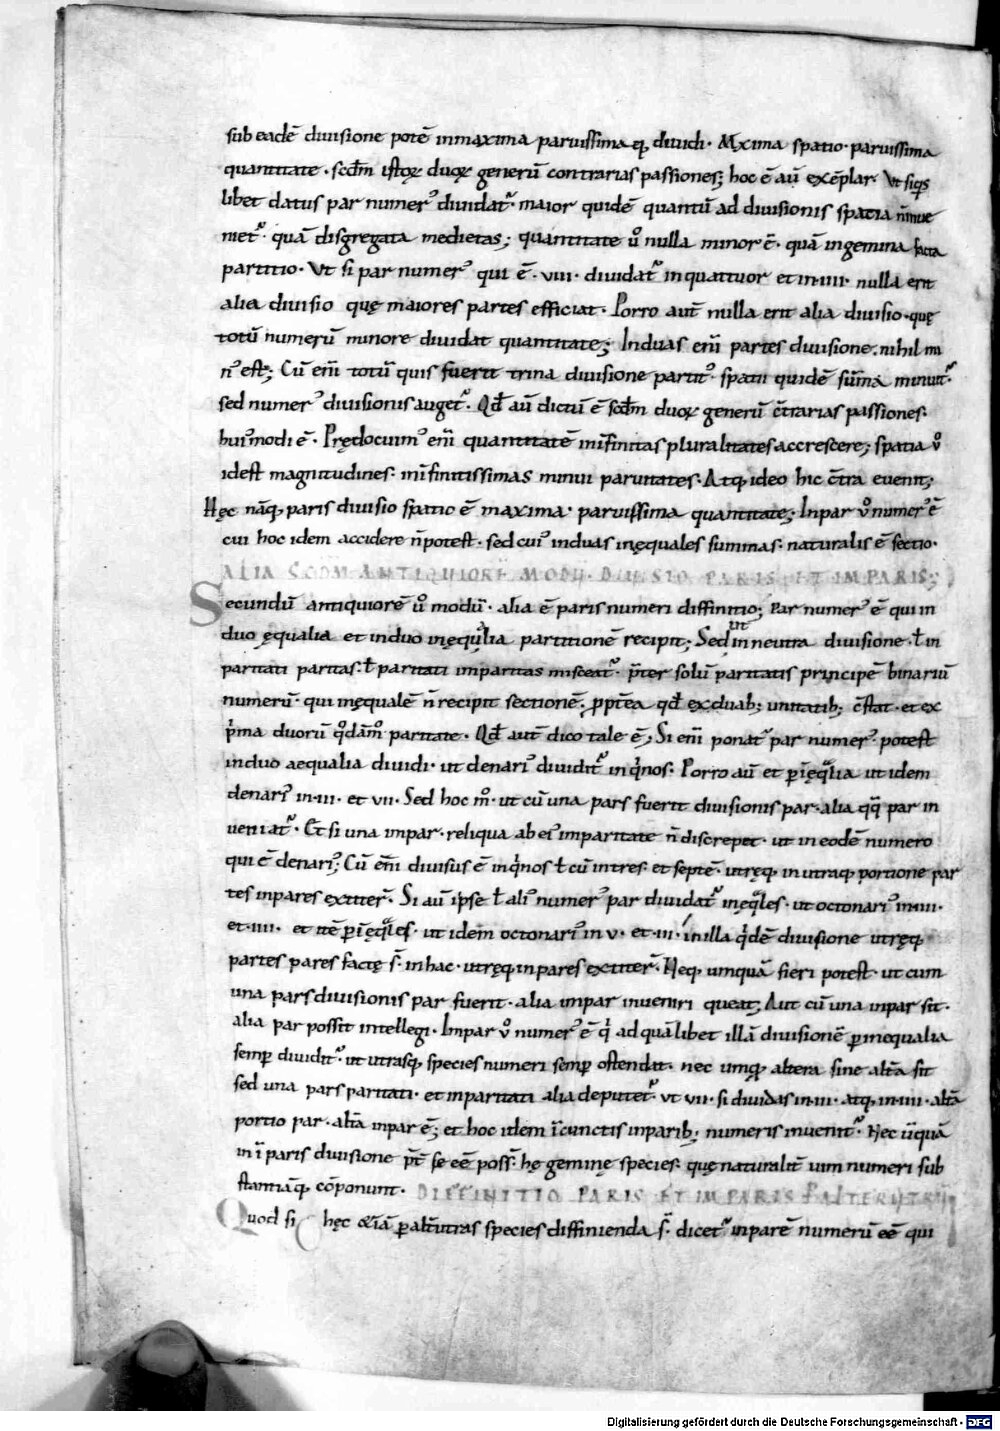 sub eadē diuisione potē inmaxima paruissimaq; diuidi· Maxima spatio· paruissima
quantitate· scđm istoꝝ duoꝝ generū contrarias passiones; hoc ē aū exēplar· Vt siq's
libet datus par numer᾽ diuidat᷑· maior quidē quantū ad diuisionis spatia n̄ inue
niet᷑· quā disgregata medietas; quantitate ů nulla minor ē· quā ingemina facta
partitio· Vt si par numer᾽ qui ē· VIII· diuidat᷑ inquattuor et in·IIII· nulla erit
alia diuisio quę maiores partes efficiat· Porro aut̄ nulla erit alia diuisio· quę
totū numerū minore diuidat quantitate; Induas enī partes diuisione· nihil mi
n᾽ est; Cū enī totū quis fuerit trina diuisione partit᾽· spatii quidē sūma minuit᷑·
sed numer᾽ diuisionis auget᷑· Qđ aū dictū ē scđm duoꝝ generū c̄trarias passiones·
hui᾽modi ē· Prędocuim᾽ enī quantitatē ininfinitas pluralitates accrescere; spatia ů
idest magnitudines· ininfinitissimas minui paruitates· Atq; ideo hic c̄tra euenit;
Hęc nāq; paris diuisio spatio ē maxima· paruissima quantitate; Inpar ů numer᾽ ē
cui hoc idem accidere n̄ potest· sed cui᾽ induas inęquales summas· naturalis ē sectio·
ALIA SCDM ANTIQUIORĒ MODŪ· DIUISIO PARIS ET IMPARIS;
Secundū antiquiorē ů modū· alia ē paris numeri diffinitio; Par numer᾽ ē qui in
duo ęqualia et induo inęqualia partitionē recipit; Sed ut in neutra diuisione· ł in
paritati paritas· ł paritati imparitas misceat᷑· p̄ter solū paritatis principē binariū
numerū· qui inęqualē n̄ recipit sectionē· ꝓpt̄ea qđ ex duab; unitatib; c̄stat· et ex
p'ma duorū q°dām° paritate· Qđ aut̄ dico tale ē; Si enī ponat᷑ par numer᾽· potest
induo aequalia diuidi· ut denari᾽ diuidit᷑ in q'nos· Porro aū et ꝑ inęqlia ut idem
denari᾽ in·III· et VII· Sed hoc m°· ut cū una pars fuerit diuisionis par· alia qq; par in
ueniat᷑· Et si una impar· reliqua ab ei᾽ imparitate n̄ discrepet· ut in eodē numero
qui ē denari᾽; Cū enī diuisus ē in q'nos ł cū intres· et septē· utręq; in utraq; portione par
tes inpares extiter̄· Si aū ipse ł ali᾽ numer᾽ par diuidat᷑ inęqles· ut octonari᾽ in·IIII·
et·IIII· et itē ꝑ inęqles· ut idem octonari᾽ in V· et·III· in illa q'dē diuisione utręq;
partes pares factę s̄· in hac· utręq; inpares extiter̄· Neq; umquā fieri potest· ut cum
una pars diuisionis par fuerit· alia impar inueniri queat; Aut cū una inpar sit·
alia par possit intellegi· Impar ů numer᾽ ē q' ad quālibet illā diuisionē ꝑ inequalia
semꝑ diuidit᷑· ut utrasq; species numeri semꝑ ostendat· nec umq; altera sine alt̄a sit
sed una pars paritati· et inparitati alia deputet᷑· Vt VII· si diuidas in·III· atq; in·IIII· alt̄a
portio par· alt̄a inpar ē; et hoc idem ī cunctis inparib; numeris inuenit᷑· Nec ūquā
in ī paris diuisione p̄t̄ se eē poss̄· hę geminę species· quę naturalit̄ uim numeri sub
stantiāq; cōponunt· DIFFINITIO PARIS ET IMPARIS P ALTERUTRŪ;
Quod si hęc etiā ꝑ alt̄utras species diffinienda s̄· dicet᷑ inparē numerū eē qui
Digitalisierung gefördert durch die Deutsche Forschungsgemeinschaft - DFG